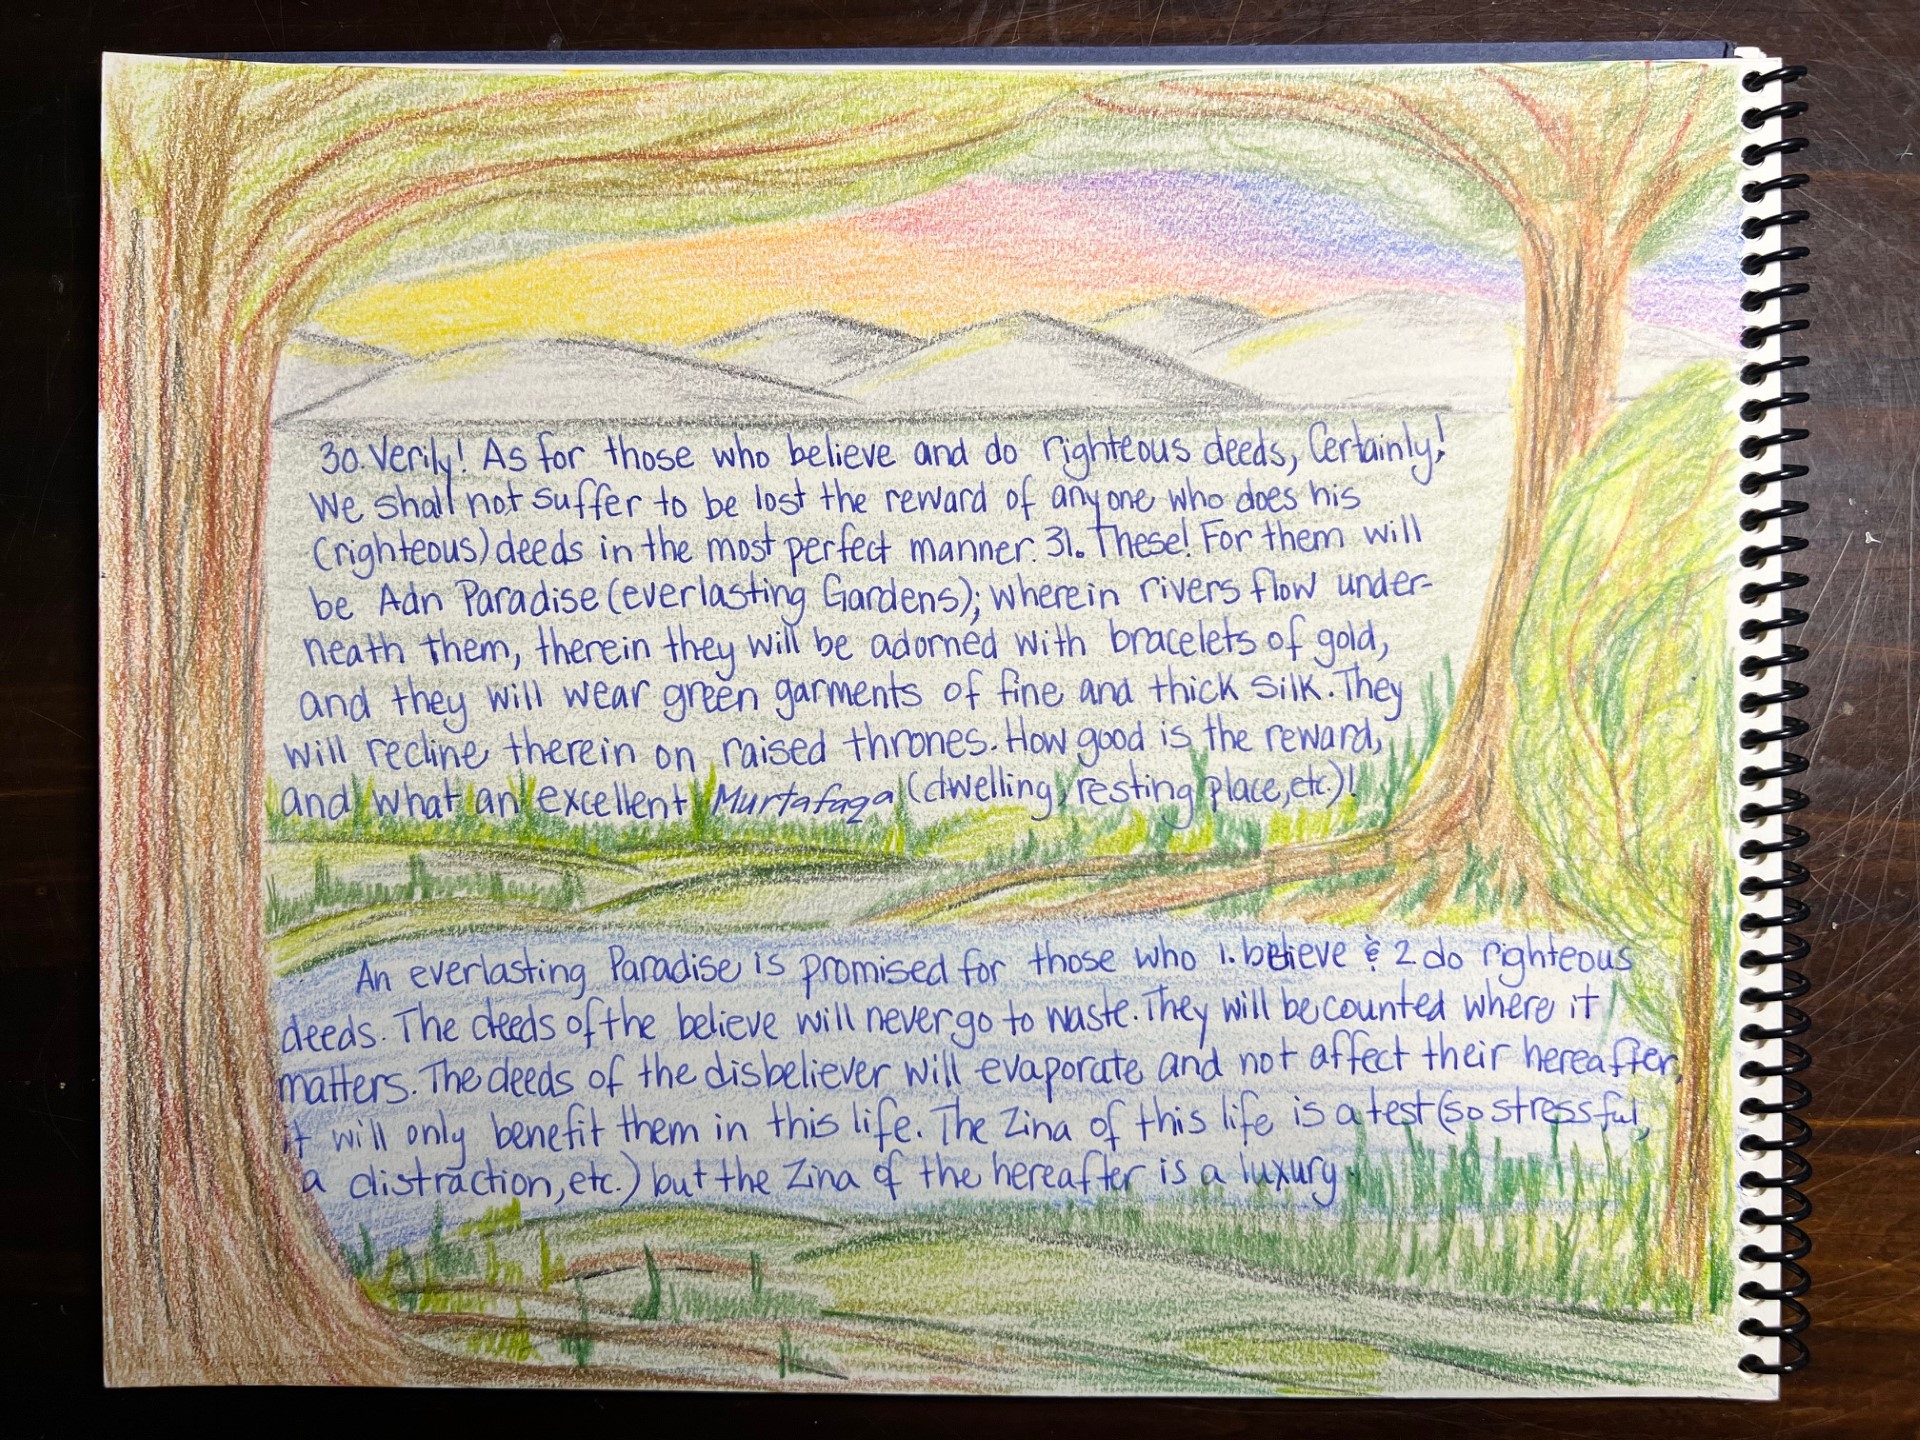 30. Verily! As for those who believe and do righteous deeds, Certainly!
We shall not suffer to be lost the reward of anyone who does his
(righteous) deeds in the most perfect manner. 31. These! For them will
be Adn Paradise (everlasting Gardens); wherein rivers flow under-
neath them, therein they will be adorned with bracelets of gold,
and they will wear green garments of fine and thick silk. They
will recline therein on raised thrones. How good is the reward,
and what an excellent Murtafaqa (dwelling, resting place, etc.)!
An everlasting Paradise is promised for those who 1. believe & 2 do righteous
deeds. The deeds of the believe will never go to waste. They will be counted where it
matters. The deeds of the disbeliever will evaporate and not affect their hereafter,
it will only benefit them in this life. The Zina of this life is a test (so stressful,
a distraction, etc.) but the Zina of the hereafter is a luxury.